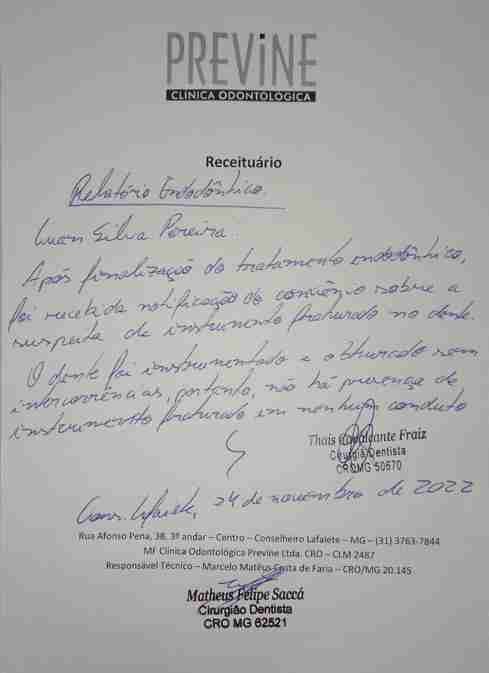 PREViNE
CLÍNICA ODONTOLÓGICA
Receituário
Relatório Endodôntico.
Luan Silva Pereira.
Após finalização do tratamento endodôntico,
foi recebida notificação do convênio sobre a
suspeita de instrumento fraturado no dente.
O dente foi instrumentado e obturado sem
intercorrências, portanto, não há presença de
instrumento fraturado em nenhum conduto
Thais Cavalcante Fraiz
Cirurgiã Dentista
CROMG 50670
Cons. Lafaiete, 24 de novembro de 2022
Rua Afonso Pena, 38, 3º andar – Centro – Conselheiro Lafaiete – MG – (31) 3763-7844
MF Clínica Odontológica Previne Ltda. CRO – CLM 2487
Responsável Técnico – Marcelo Matêus Costa de Faria – CRO/MG 20.145
Matheus Felipe Saccá
Cirurgião Dentista
CRO MG 62521